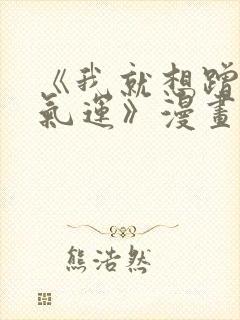 《我就想蹭
氣運》漫畫
熊浩然